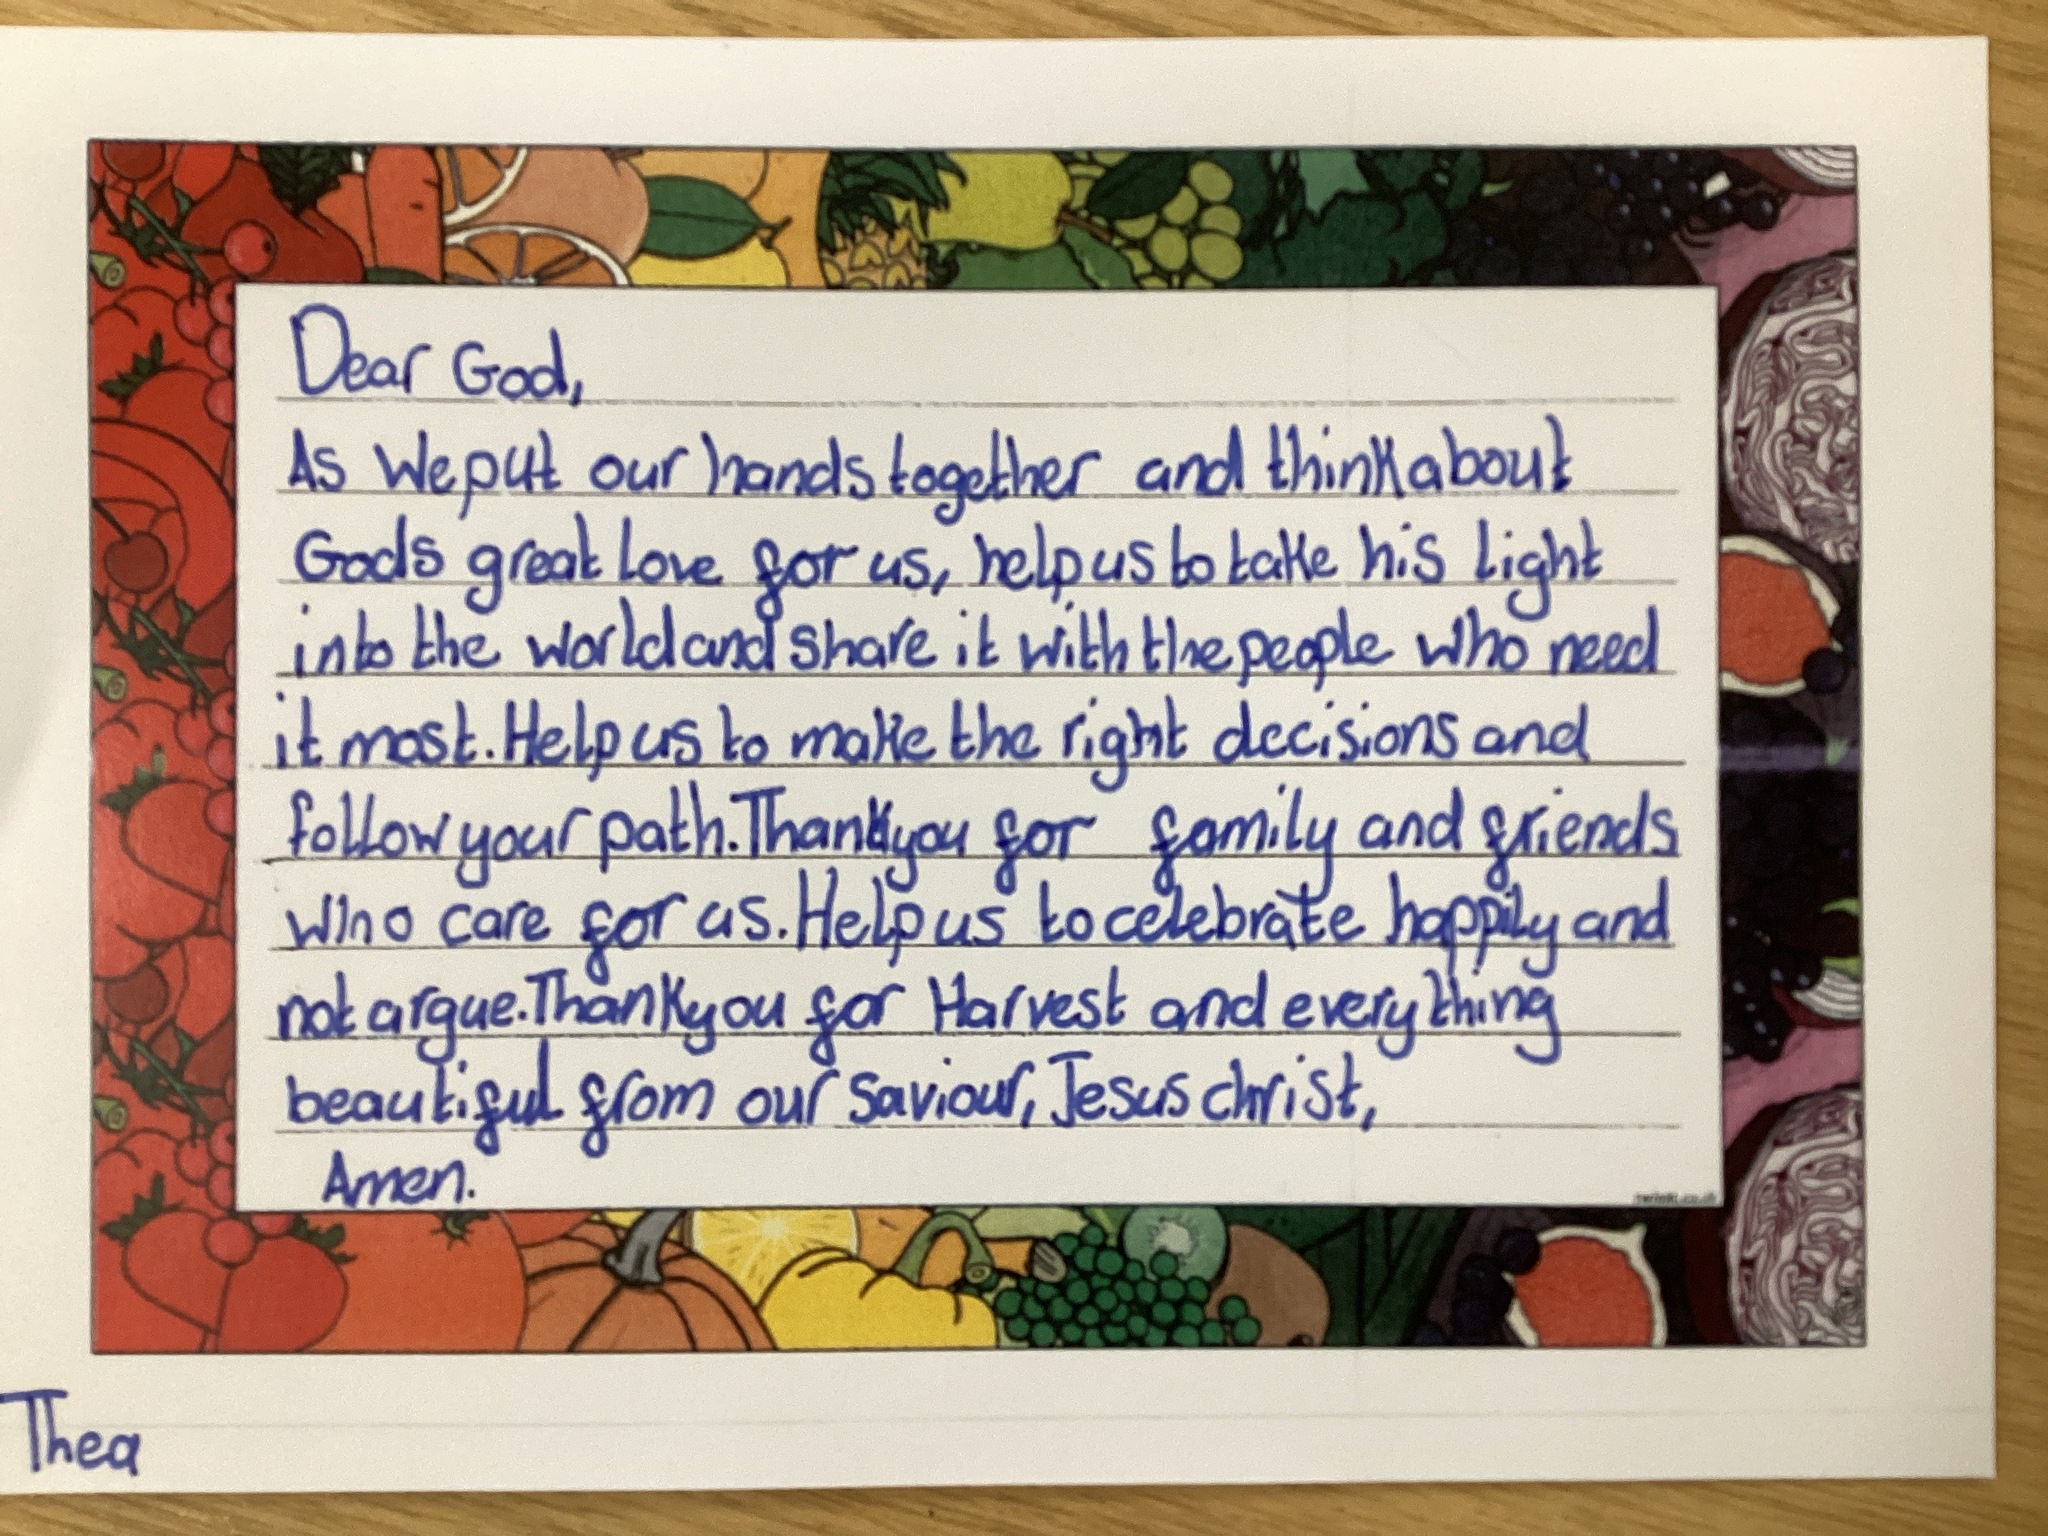 Dear God,
As we put our hands together and think about
Gods great love for us, help us to take his light
into the world and share it with the people who need
it most. Help us to make the right decisions and
follow your path. Thank you for family and friends
who care for us. Help us to celebrate happily and
not argue. Thank you for Harvest and everything
beautiful from our saviour, Jesus christ,
Amen.
twinkl.co.uk
Thea